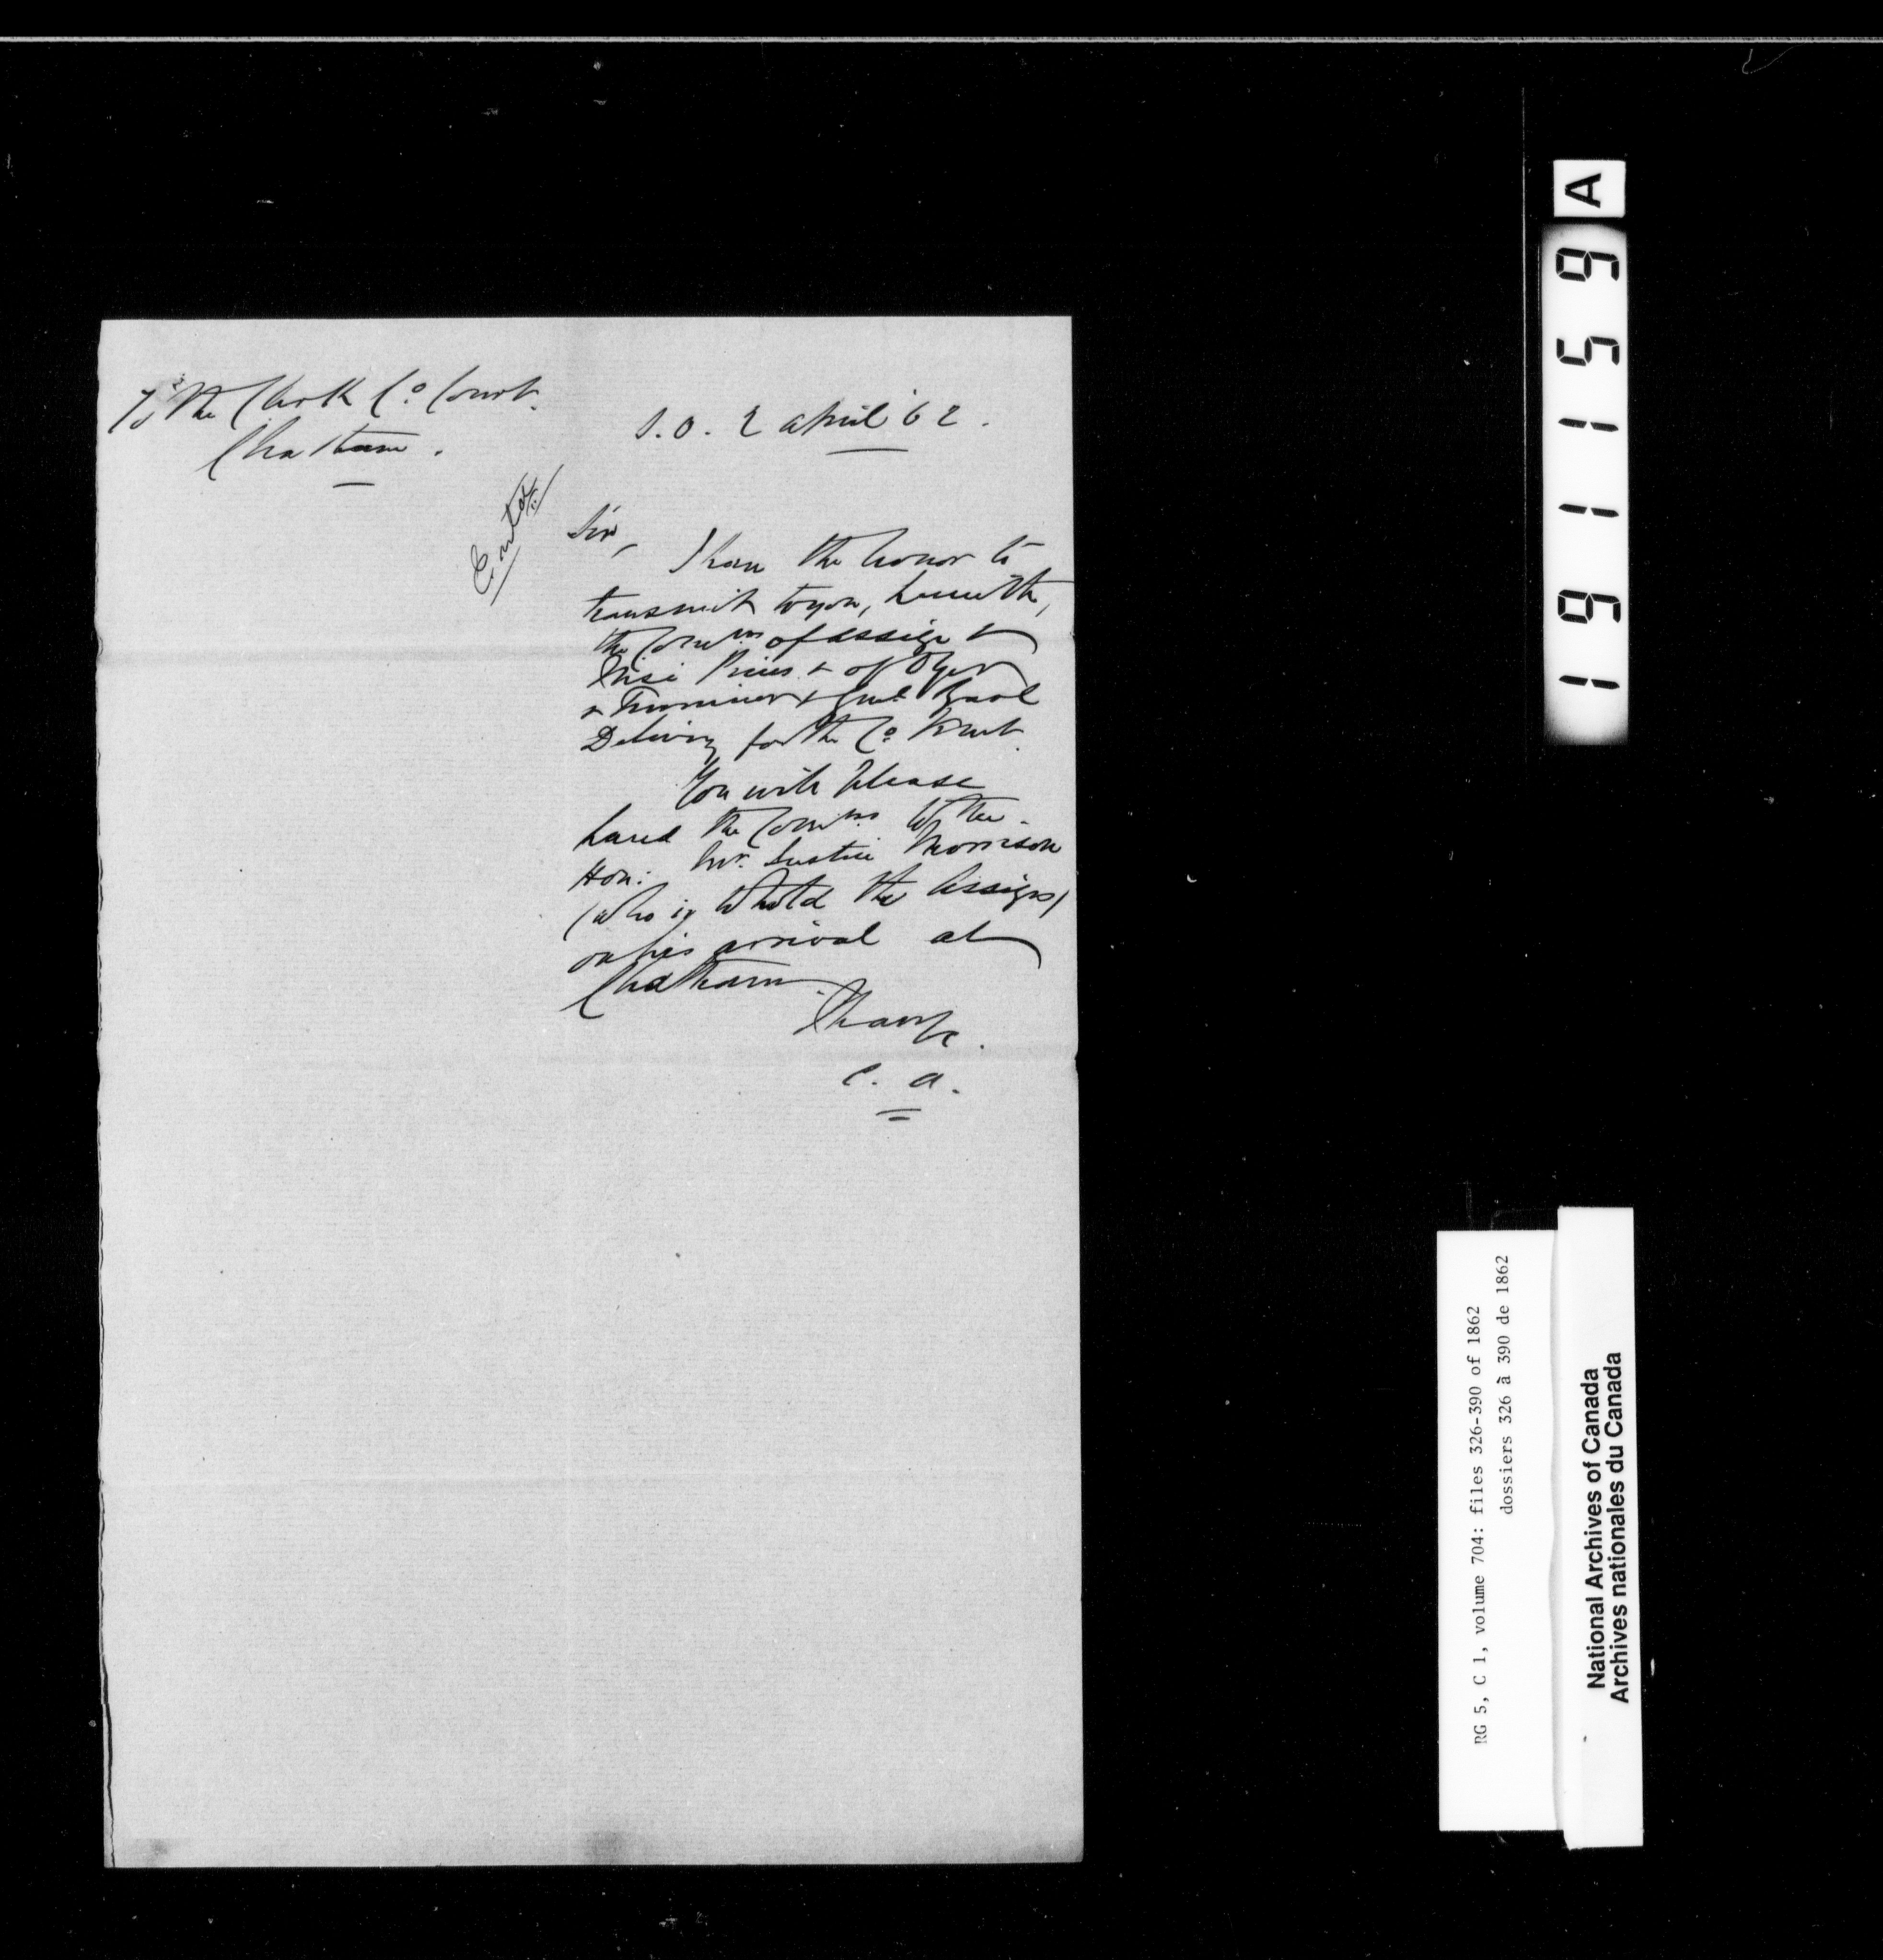 To The Clerk Co Court.
Chatham.
S.O. 2 April '62.
Sir,
I have the honor to
transmit to you, herewith,
the Comms of Assize &
Nisi Prius & of Oyer
& Terminer & Genl Gaol
Delivery for the Co Kent.
You will please
hand the Comms to the
Hon: Mr. Justice Morrison
(who is to hold the Assizes)
on his arrival at
Chatham.
C. A.
191159
A
RG 5, C 1, volume 704: files 326-390 of 1862
dossiers 326 à 390 de 1862
National Archives of Canada
Archives nationales du Canada